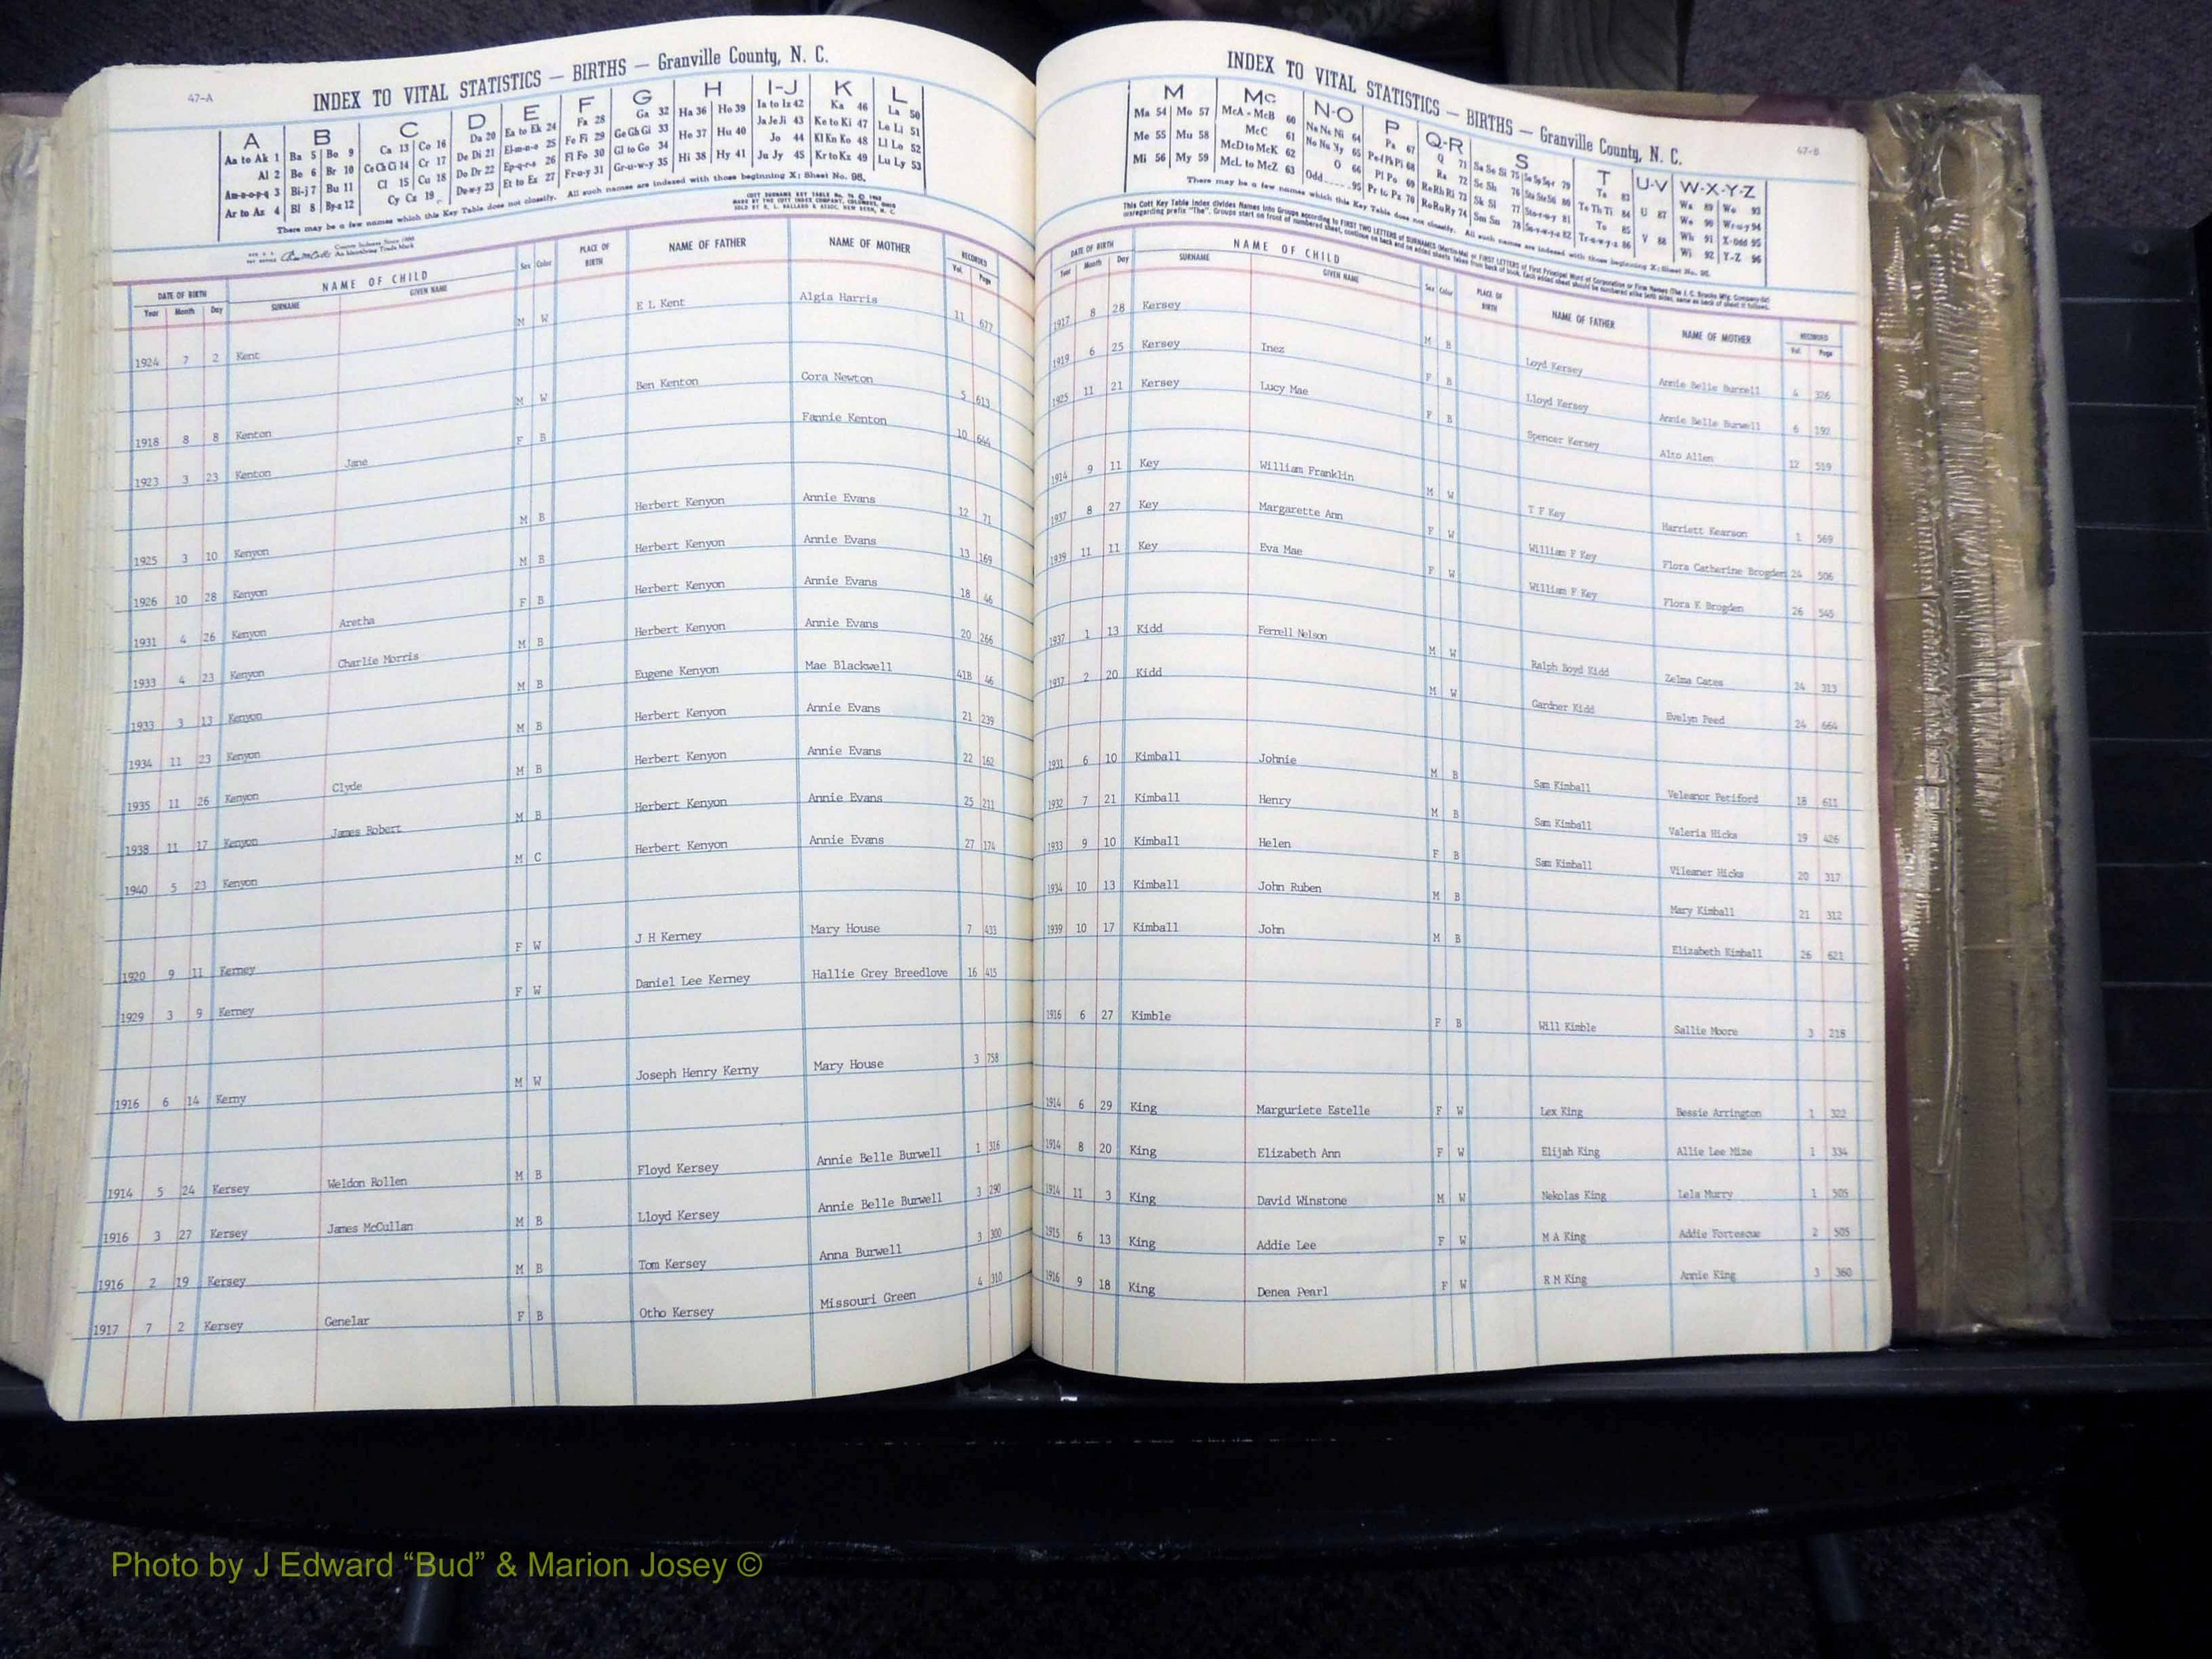 47-A
INDEX TO VITAL STATISTICS — BIRTHS — Granville County, N. C.
A B C D E F G H I-J K L
Aa to Ak 1 Ba 5 Bo 9 Ca 13 Co 16 Da 20 Ea to Ek 24 Fa 28 Ga 32 Ha 36 Ho 39 Ia to Iz 42 Ka 46 La 50
Al 2 Be 6 Br 10 Ce Ch Ci 14 Cr 17 De Di 21 El-m-n-o 25 Fe Fi 29 Ge Gh Gi 33 He 37 Hu 40 Ja Je Ji 43 Ke to Ki 47 Le Li 51
Am-n-o-p-q 3 Bi-j 7 Bu 11 Cl 15 Cu 18 Do Dr 22 Ep-q-r-s 26 Fl Fo 30 Gl to Go 34 Hi 38 Hy 41 Jo 44 Kl Kn Ko 48 Ll Lo 52
Ar to Az 4 Bl 8 By-z 12 Cy Cz 19 Du-w-y 23 Et to Ez 27 Fr-u-y 31 Gr-u-w-y 35 Ju Jy 45 Kr to Kz 49 Lu Ly 53
There may be a few names which this Key Table does not classify. All such names are indexed with those beginning X: Sheet No. 98.
DATE OF BIRTH NAME OF CHILD Sex Color PLACE OF BIRTH NAME OF FATHER NAME OF MOTHER RECORDED
Year Month Day SURNAME GIVEN NAME Vol. Page
1924 7 2 Kent M W E L Kent Algia Harris 11 677
1918 8 8 Kenton M W Ben Kenton Cora Newton 5 613
1923 3 23 Kenton Jane F B Fannie Kenton 10 644
1925 3 10 Kenyon M B Herbert Kenyon Annie Evans 12 71
1926 10 28 Kenyon M B Herbert Kenyon Annie Evans 13 169
1931 4 26 Kenyon Aretha F B Herbert Kenyon Annie Evans 18 46
1933 4 23 Kenyon Charlie Morris M B Herbert Kenyon Annie Evans 20 266
1933 3 13 Kenyon M B Eugene Kenyon Mae Blackwell 41B 46
1934 11 23 Kenyon M B Herbert Kenyon Annie Evans 21 239
1935 11 26 Kenyon Clyde M B Herbert Kenyon Annie Evans 22 162
1938 11 17 Kenyon James Robert M B Herbert Kenyon Annie Evans 25 211
1940 5 23 Kenyon M C Herbert Kenyon Annie Evans 27 174
1920 9 11 Kerney F W J H Kerney Mary House 7 433
1929 3 9 Kerney F W Daniel Lee Kerney Hallie Grey Breedlove 16 415
1916 6 14 Kerny M W Joseph Henry Kerny Mary House 3 758
1914 5 24 Kersey Weldon Rollen M B Floyd Kersey Annie Belle Burwell 1 316
1916 3 27 Kersey James McCullan M B Lloyd Kersey Annie Belle Burwell 3 290
1916 2 19 Kersey M B Tom Kersey Anna Burwell 3 300
1917 7 2 Kersey Genelar F B Otho Kersey Missouri Green 4 310
47-B
INDEX TO VITAL STATISTICS — BIRTHS — Granville County, N. C.
M Mc N-O P Q-R S T U-V W-X-Y-Z
Ma 54 Mo 57 McA - McB 60 Na Ne Ni 64 Pa 67 Q 71 Sa Se Si 75 Ta 83 U 87 Wa 89 Wo 93
Me 55 Mu 58 McC 61 No Nu Ny 65 Pe-f Ph Pi 68 Ra 72 Sc Sh 76 Te Th Ti 84 V 88 We 90 Wr-u-y 94
Mi 56 My 59 McD to McK 62 O 66 Pl Po 69 Re Rh Ri 73 Sk Sl 77 To 85 Wh 91 X-Odd 95
McL to McZ 63 Odd 95 Pr to Pz 70 Ro Ru Ry 74 Sm Sn 78 Tr-u-w-y-z 86 Wi 92 Y-Z 96
There may be a few names which this Key Table does not classify. All such names are indexed with those beginning X: Sheet No. 98.
DATE OF BIRTH NAME OF CHILD Sex Color PLACE OF BIRTH NAME OF FATHER NAME OF MOTHER RECORDED
Year Month Day SURNAME GIVEN NAME Vol. Page
1917 8 28 Kersey M B Loyd Kersey Annie Belle Burrell 4 326
1919 6 25 Kersey Inez F B Lloyd Kersey Annie Belle Burwell 6 192
1925 11 21 Kersey Lucy Mae F B Spencer Kersey Alto Allen 12 519
1914 9 11 Key William Franklin M W T F Key Harriett Kearson 1 569
1937 8 27 Key Margarette Ann F W William F Key Flora Catherine Brogden 24 506
1939 11 11 Key Eva Mae F W William F Key Flora K Brogden 26 545
1937 1 13 Kidd Ferrell Nelson M W Ralph Boyd Kidd Zelma Cates 24 313
1937 2 20 Kidd M W Gardner Kidd Evelyn Peed 24 664
1931 6 10 Kimball Johnie M B Sam Kimball Veleanor Petiford 18 611
1932 7 21 Kimball Henry M B Sam Kimball Valeria Hicks 19 426
1933 9 10 Kimball Helen F B Sam Kimball Vileaner Hicks 20 317
1934 10 13 Kimball John Ruben M B Mary Kimball 21 312
1939 10 17 Kimball John M B Elizabeth Kimball 26 621
1916 6 27 Kimble F B Will Kimble Sallie Moore 3 218
1914 6 29 King Marguriete Estelle F W Lex King Bessie Arrington 1 322
1914 8 20 King Elizabeth Ann F W Elijah King Allie Lee Mize 1 334
1914 11 3 King David Winstone M W Nekolas King Lela Murry 1 505
1915 6 13 King Addie Lee F W M A King Addie Fortescue 2 505
1916 9 18 King Denea Pearl F W R M King Annie King 3 360
Photo by J Edward “Bud” & Marion Josey ©